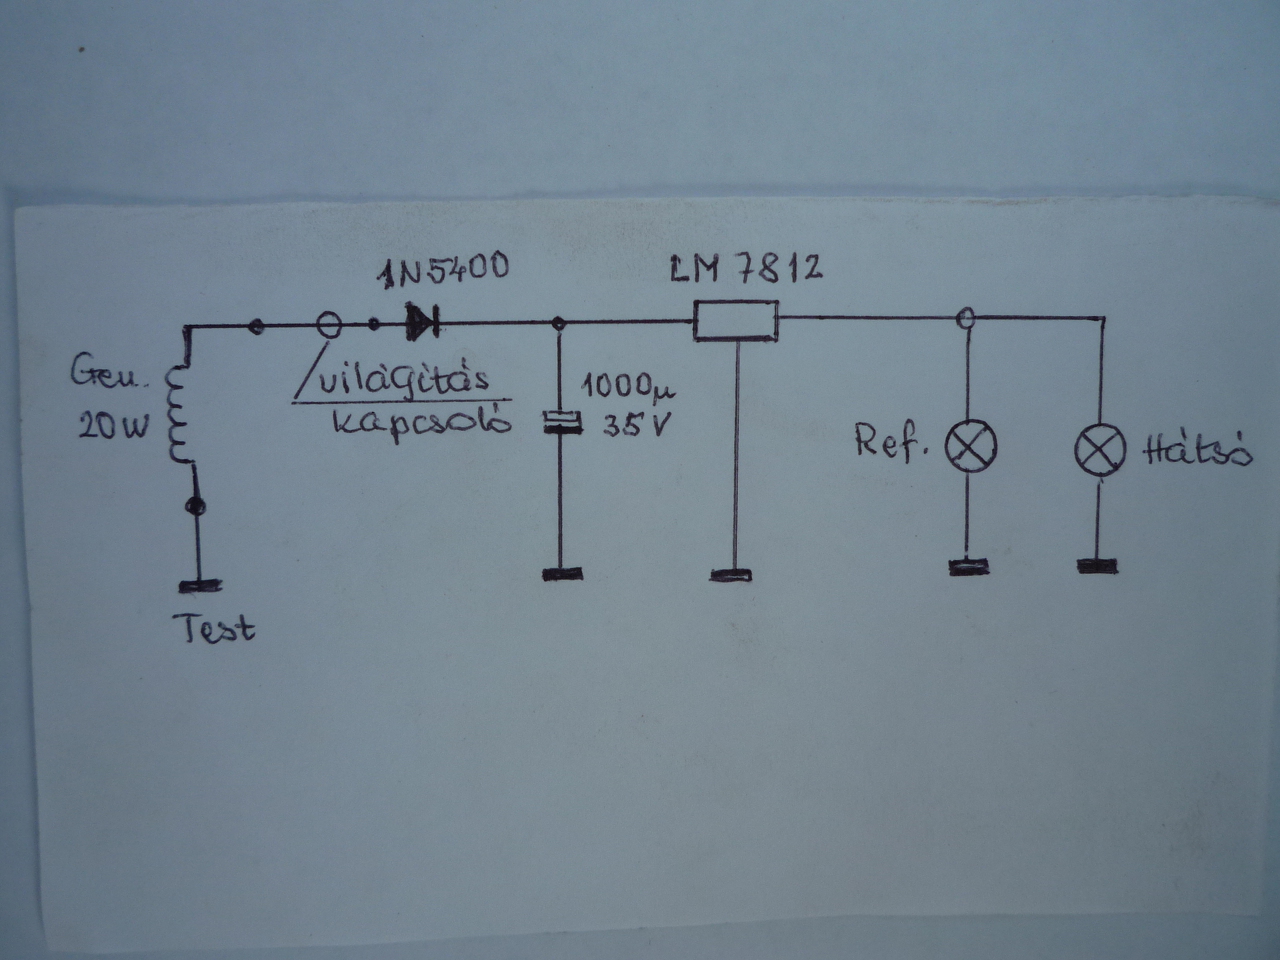 1N5400
LM 7812
Gen.
20W
világítás
kapcsoló
1000µ
35V
Ref.
Hátsó
Test